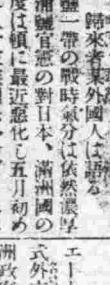 歸來者某外國人は語る
鹽一帶の戰時氣分は依然濃厚
浦鹽官憲の對日本、滿洲國の
度は頓に最近惡化し五月初め
エー
式外
洲政